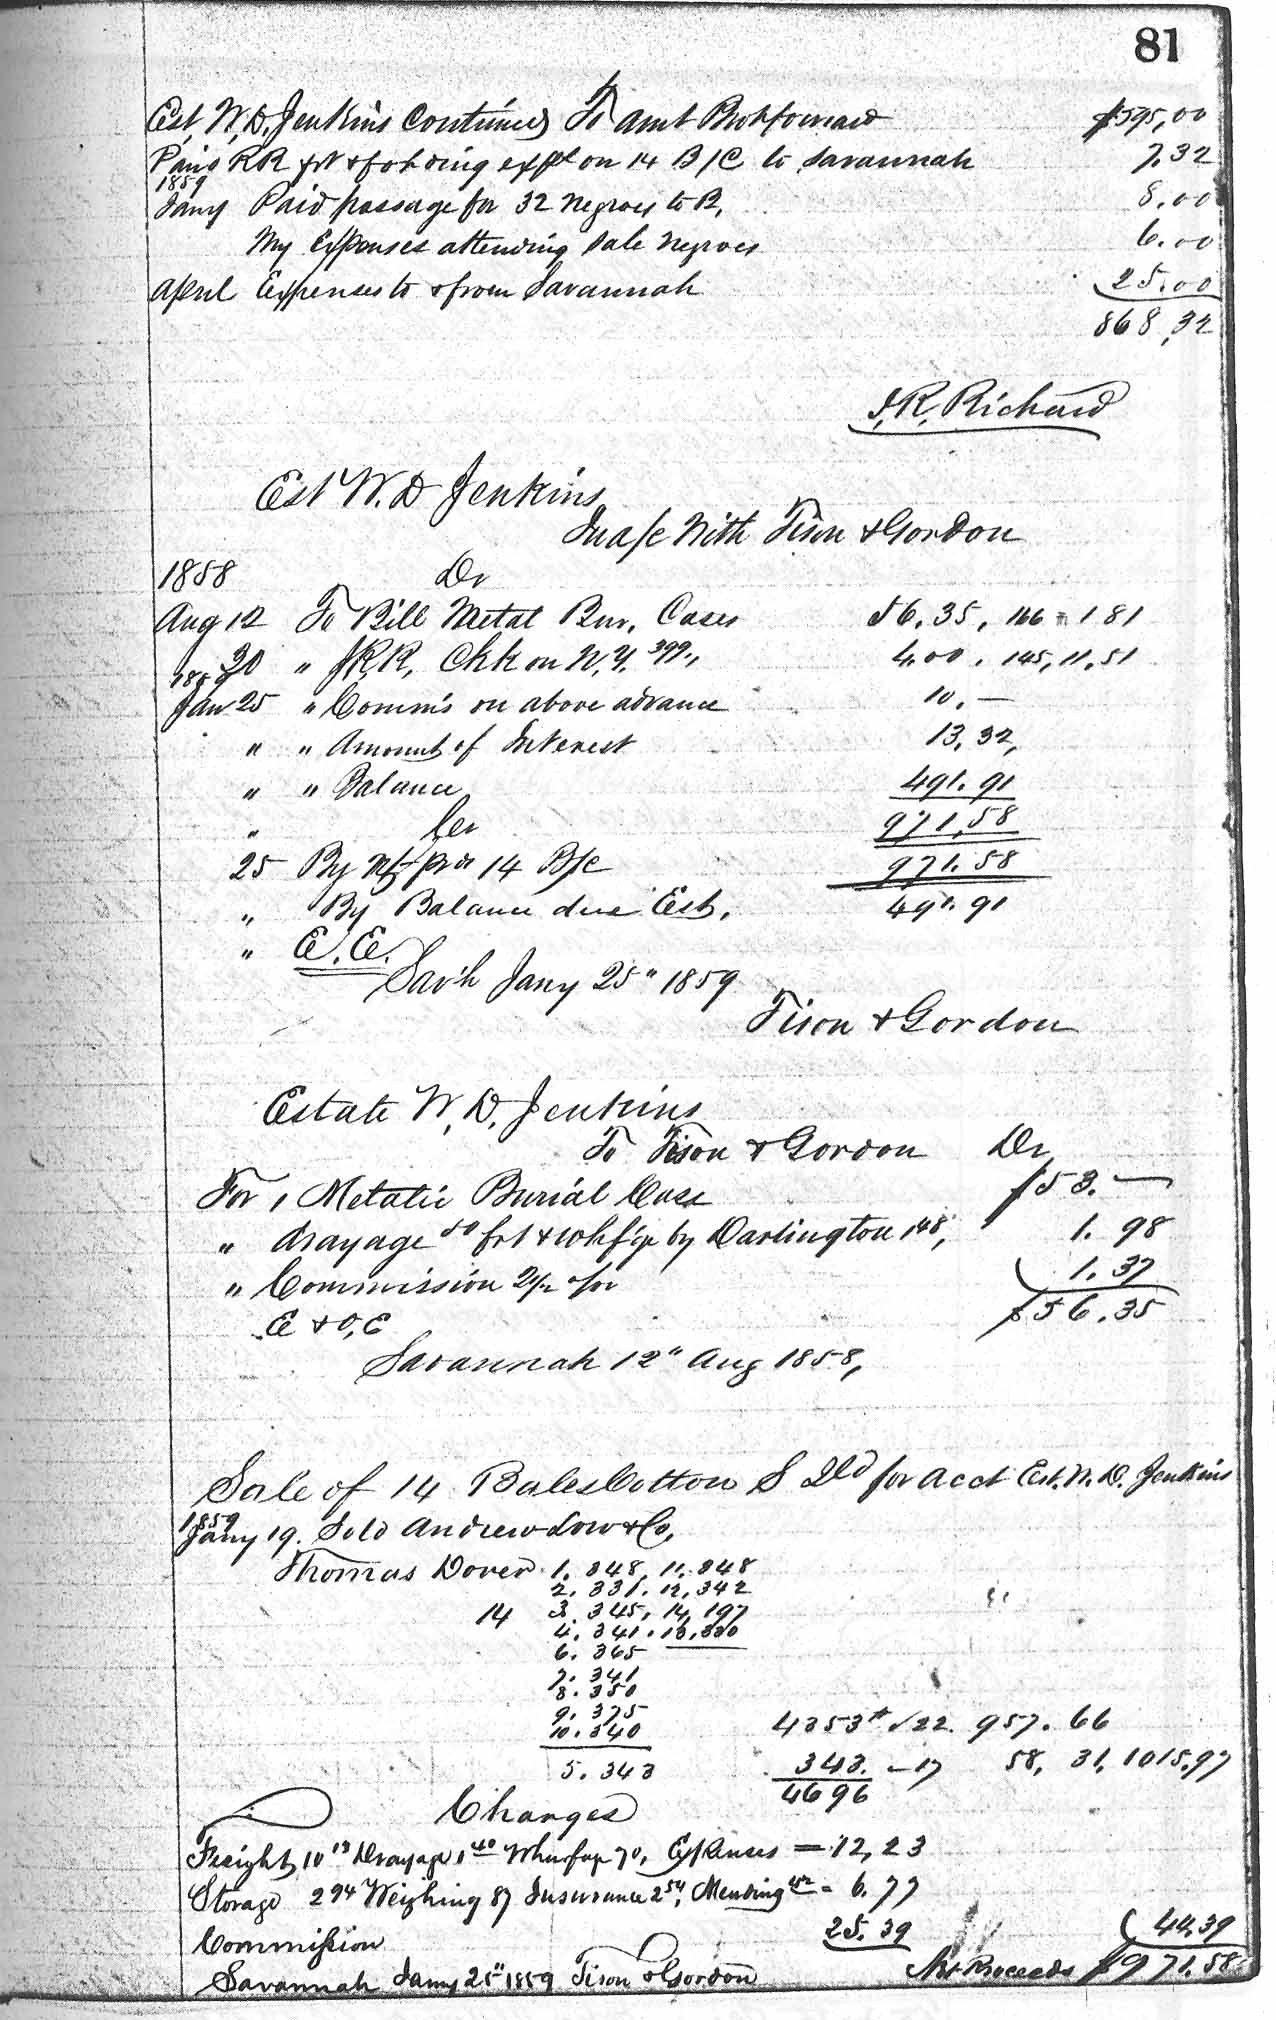 81
Est, W, D, Jenkins Continued To amt Brot forward $595,00
Paid RR frt & fording exps on 14 B/C to Savannah 7.32
1859
Jany Paid passage for 32 negroes to B, 8.00
My Expenses attending Sale Negroes 6.00
April Expenses to & from Savannah 25.00
868,32
J, R, Richard
Est W. D Jenkins
In a/c With Tison & Gordon
1858 Dr
Aug 12 To Bill Metal Bur, Cases 56.35, 166 = 1 81
20 " J, R R, Chk on N. Y. 399., 4.00. 145, 11.51
1859
Jan 25 " Comm's on above advance 10.—
" " Amount of Interest 13.32,
" " Balance 491.91
971,58
" Cr
25 By Nt pr 14 B/C 971.58
" By Balance due Est, 491.91
" E. E.
Sav'h Jany 25" 1859
Tison & Gordon
Estate W, D, Jenkins
To Tison & Gordon Dr
For 1 Metalic Burial Case $53.—
" drayage 50 frt & whf'ge by Darlington 148, 1.98
" Commission 2½ pr 1.37
E & O, E $56.35
Savannah 12" Aug 1858,
Sale of 14 Bales Cotton S Ild for acct Est. W. D. Jenkins
1859
Jany 19. Sold Andrew Low & Co,
Thomas Dover 1. 348, 11. 348
2. 331. 12, 342
14 3. 345, 14, 197
4. 341. 13, 330
6. 365
7. 341
8. 350
9. 375
10. 340 4353# √22 957.66
5. 343 343. - 17 58, 31, 1015.97
4696
Charges
Freight, 10 13 Drayage, 1 40 Wharfage 70, Expenses = 12,23
Storage 2 94 Weighing 87 Insurance 2 54, Mending 42 = 6.77
Commission 25.39 44.39
Savannah Jany 25" 1859 Tison & Gordon Net Proceeds $971.58